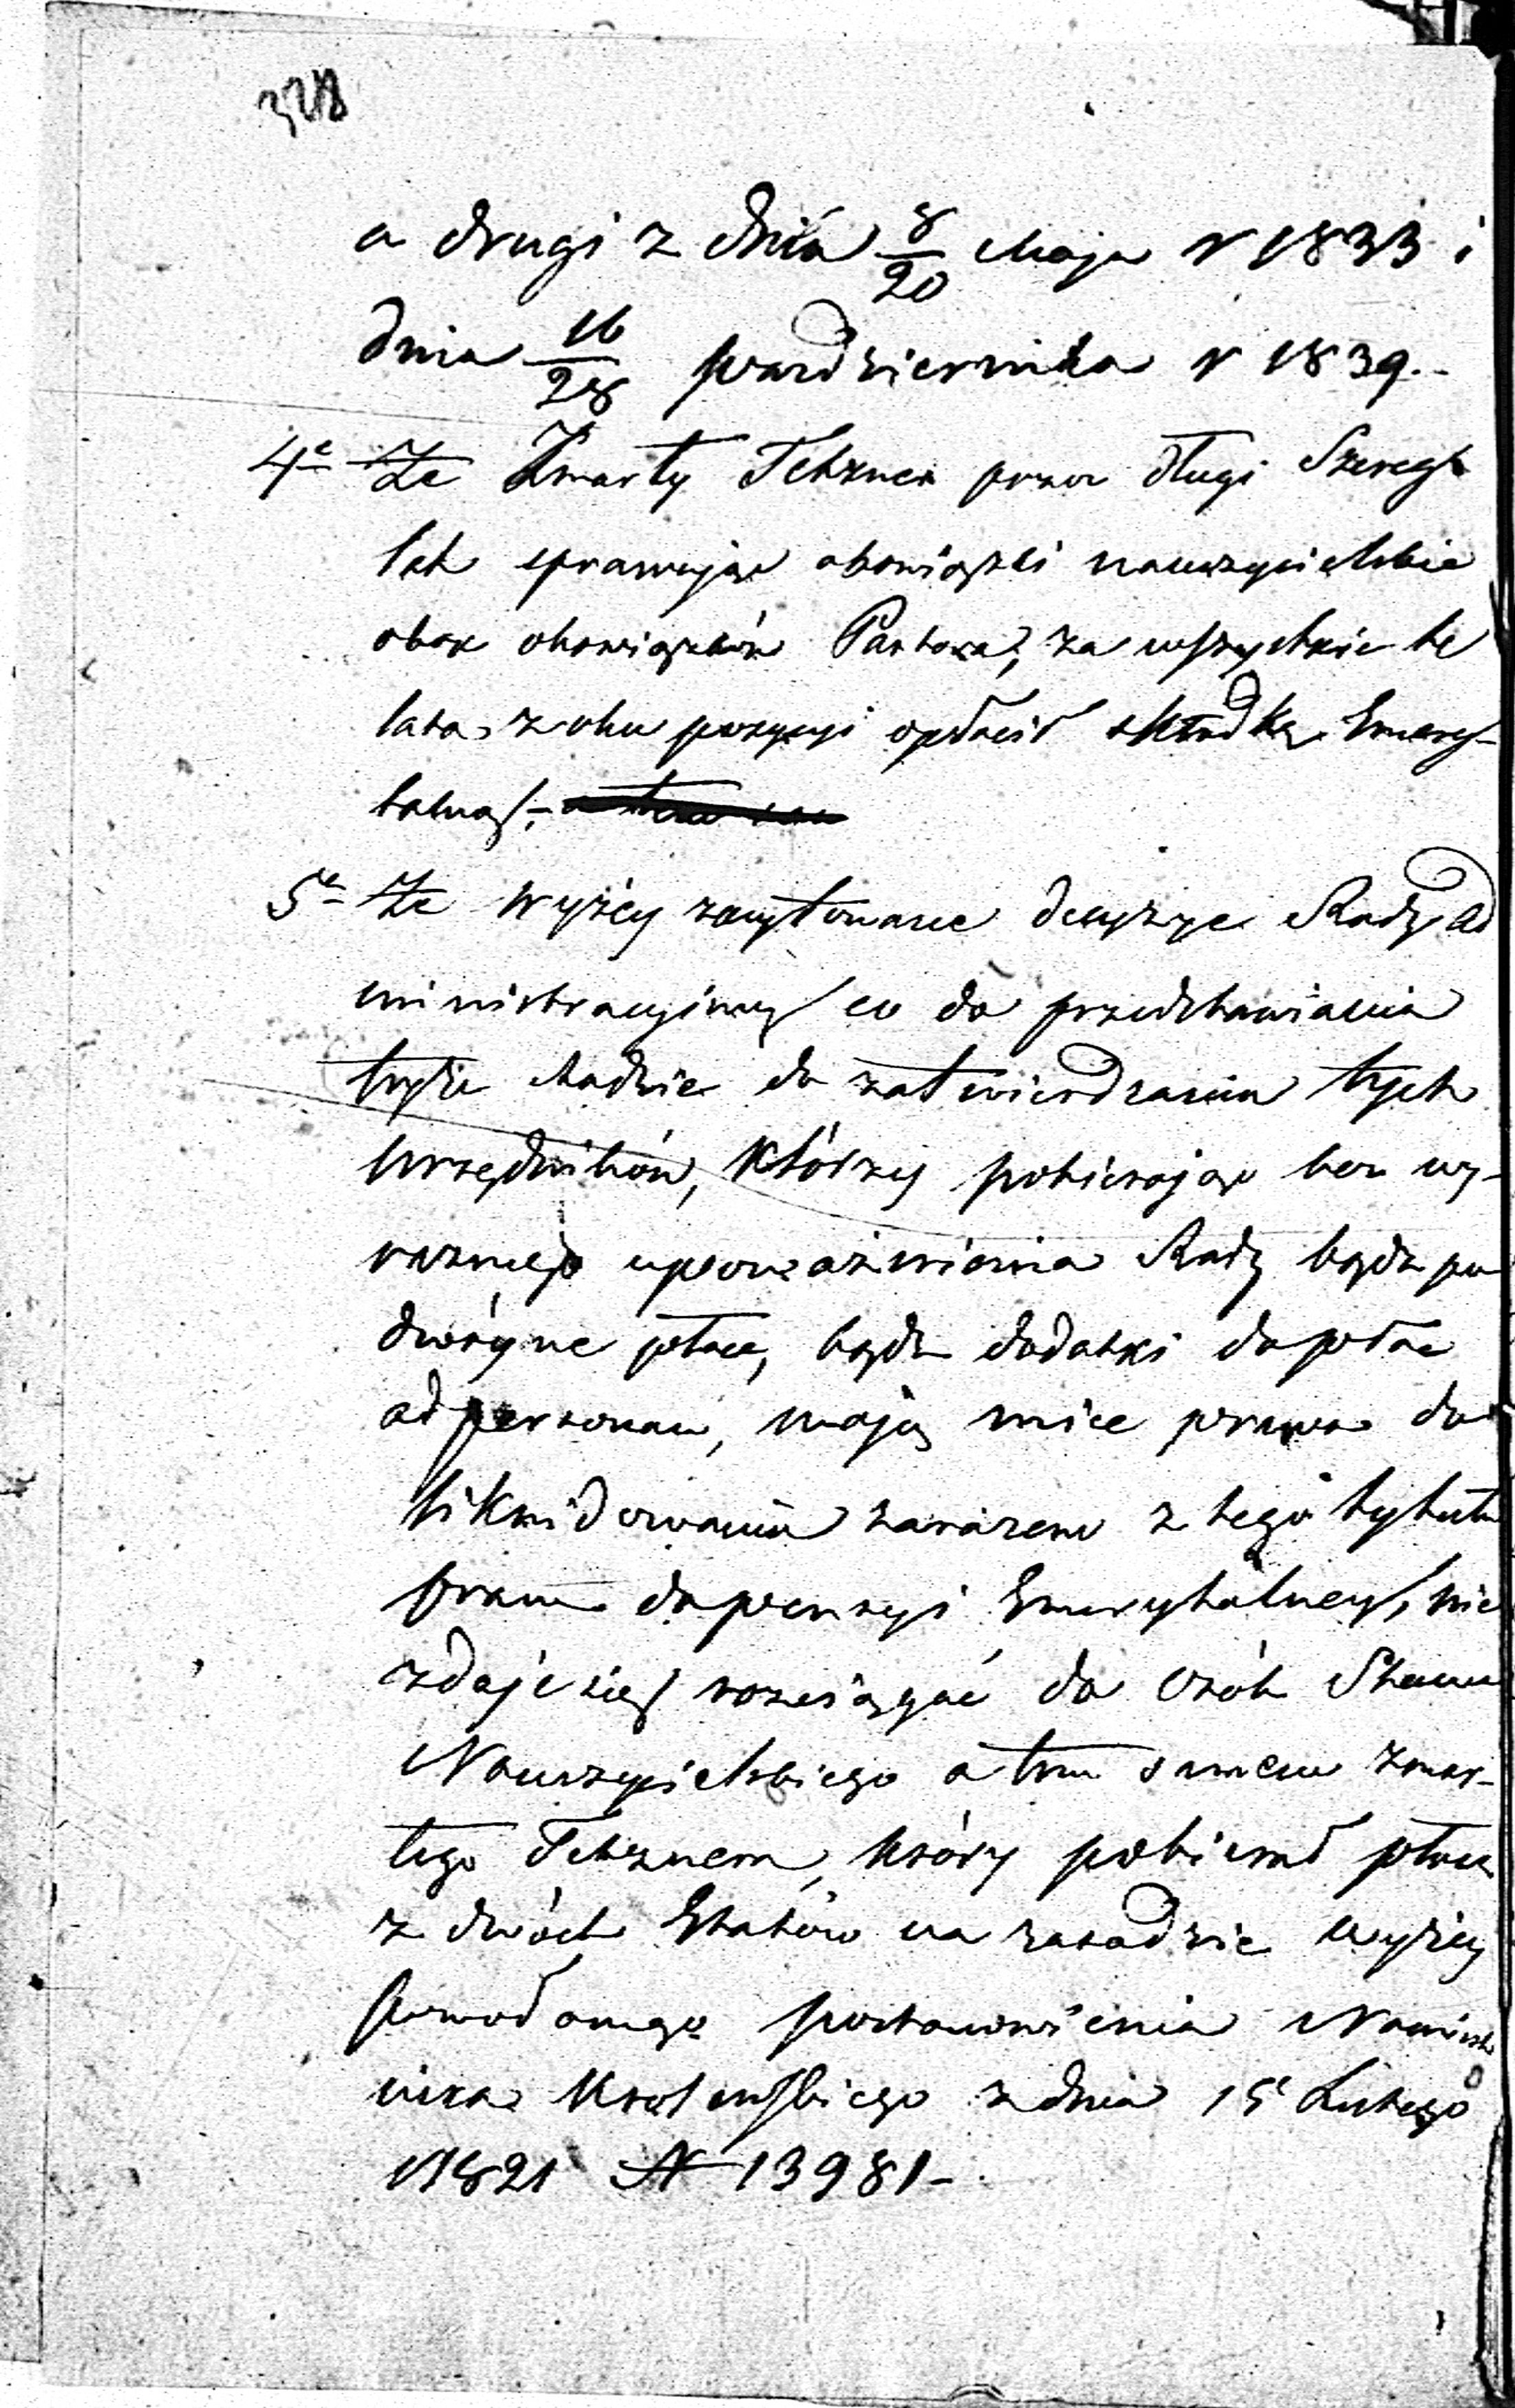 328
a drugi z dnia 8/20 Maja r 1833 i
dnia 16/28 pazdziernika r 1839.-
4e Że Zmarły Tetzner przez długi Szereg
lat sprawując obowiązki nauczycielskie
obok obowiązków Pastora, za wszystkie te
lata z obu pozycyi opłacił składkę Emery-
talną,-
5e Że wyżey zacytowane decyzye Rady Ad
ministracyiney co do przedstawiania
teyże Radzie do zatwierdzania tych
urzędników, którzy pobierając bez wy-
raznego upoważnienia Rady bądź po
dwóyne płace, bądź dodatki do płac
ad personam, mają mieć prawo do
likwidowania zarazem z tego tytułu
praw do pensyi Emerytalney, nie
zdaje się rozciągać do osób Stanu
Nauczycielskiego a tem samem zmar-
łego Tetznera, który pobierał płacę
z dwóch Etatów na zasadzie wyżey
powołanego postanowienia Namiest
nika Królewskiego z dnia 15 Lutego
1821 N 13981-